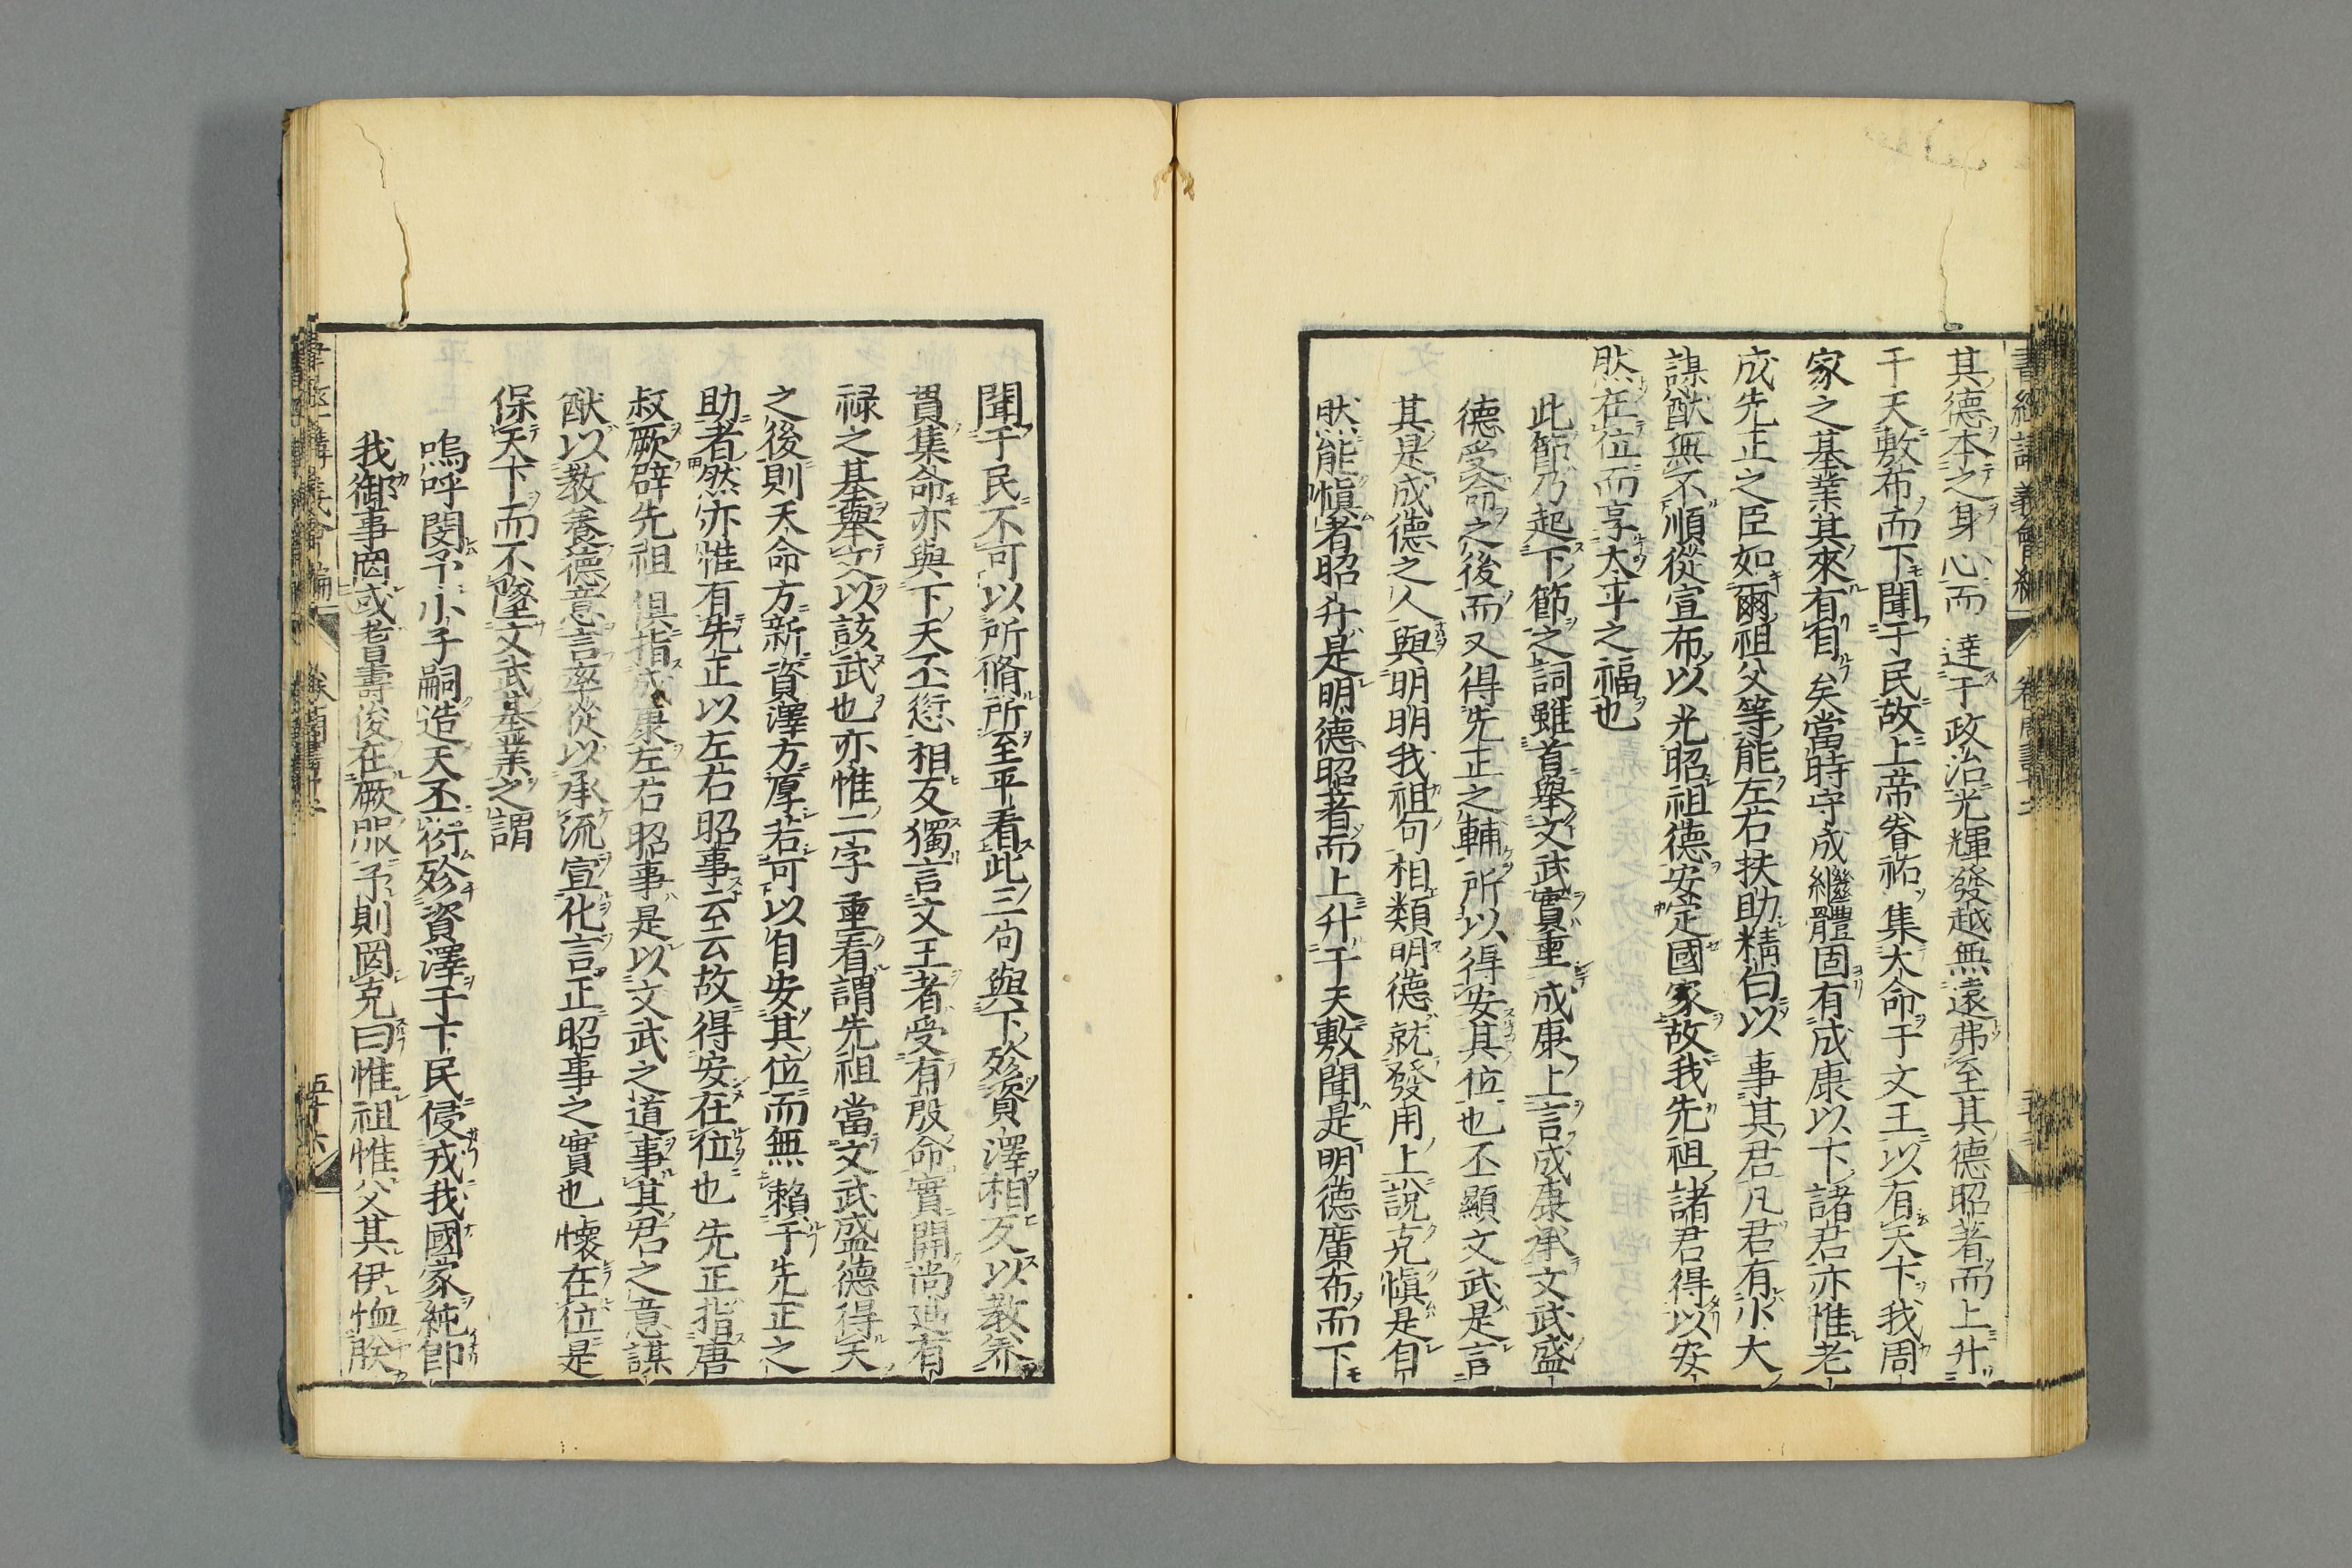 其德本之身心而達于政治光輝發越無遠弗至其德昭著而上升
于天敷布而下聞于民故上帝眷祐集大命于文王以有天下我周
家之基業其來有自矣當時守成繼體固有成康以下諸君亦惟老
成先正之臣如爾祖父等能左右扶助精白以事其君凡君有小大
謀猷無不順從宣布以光昭祖德安定國家故我先祖諸君得以安
然在位而享太平之福也
此節乃起下節之詞雖首舉文武實重成康上言成康承文武盛
德受命之後而又得先正之輔所以得安其位也丕顯文武是言
其是成德之人與明明我祖句相類明德就發用上說克愼是自
然能愼者昭升是明德昭著而上升于天敷聞是明德廣布而下
聞于民不可以所脩所至平看此三句與下殄資澤相反以教養
貫集命亦與下天丕愆相反獨言文王者受有殷命實開尚廸有
祿之基舉文以該武也亦惟二字重看謂先祖當文武盛德得天
之後則天命方新資澤方厚若可以自安其位而無賴于先正之
助者然亦惟有先正以左右昭事云云故得安在位也先正指唐
叔厥辟先祖俱指成康左右昭事是以文武之道事其君之意謀
猷以教養德意言率從以承流宣化言正昭事之實也懷在位是
保天下而不墜文武基業之謂
嗚呼閔予小子嗣造天丕衍殄資澤于下民侵戎我國家純卽
我御事罔或耆壽俊在厥服予則罔克曰惟祖惟父其伊恤朕